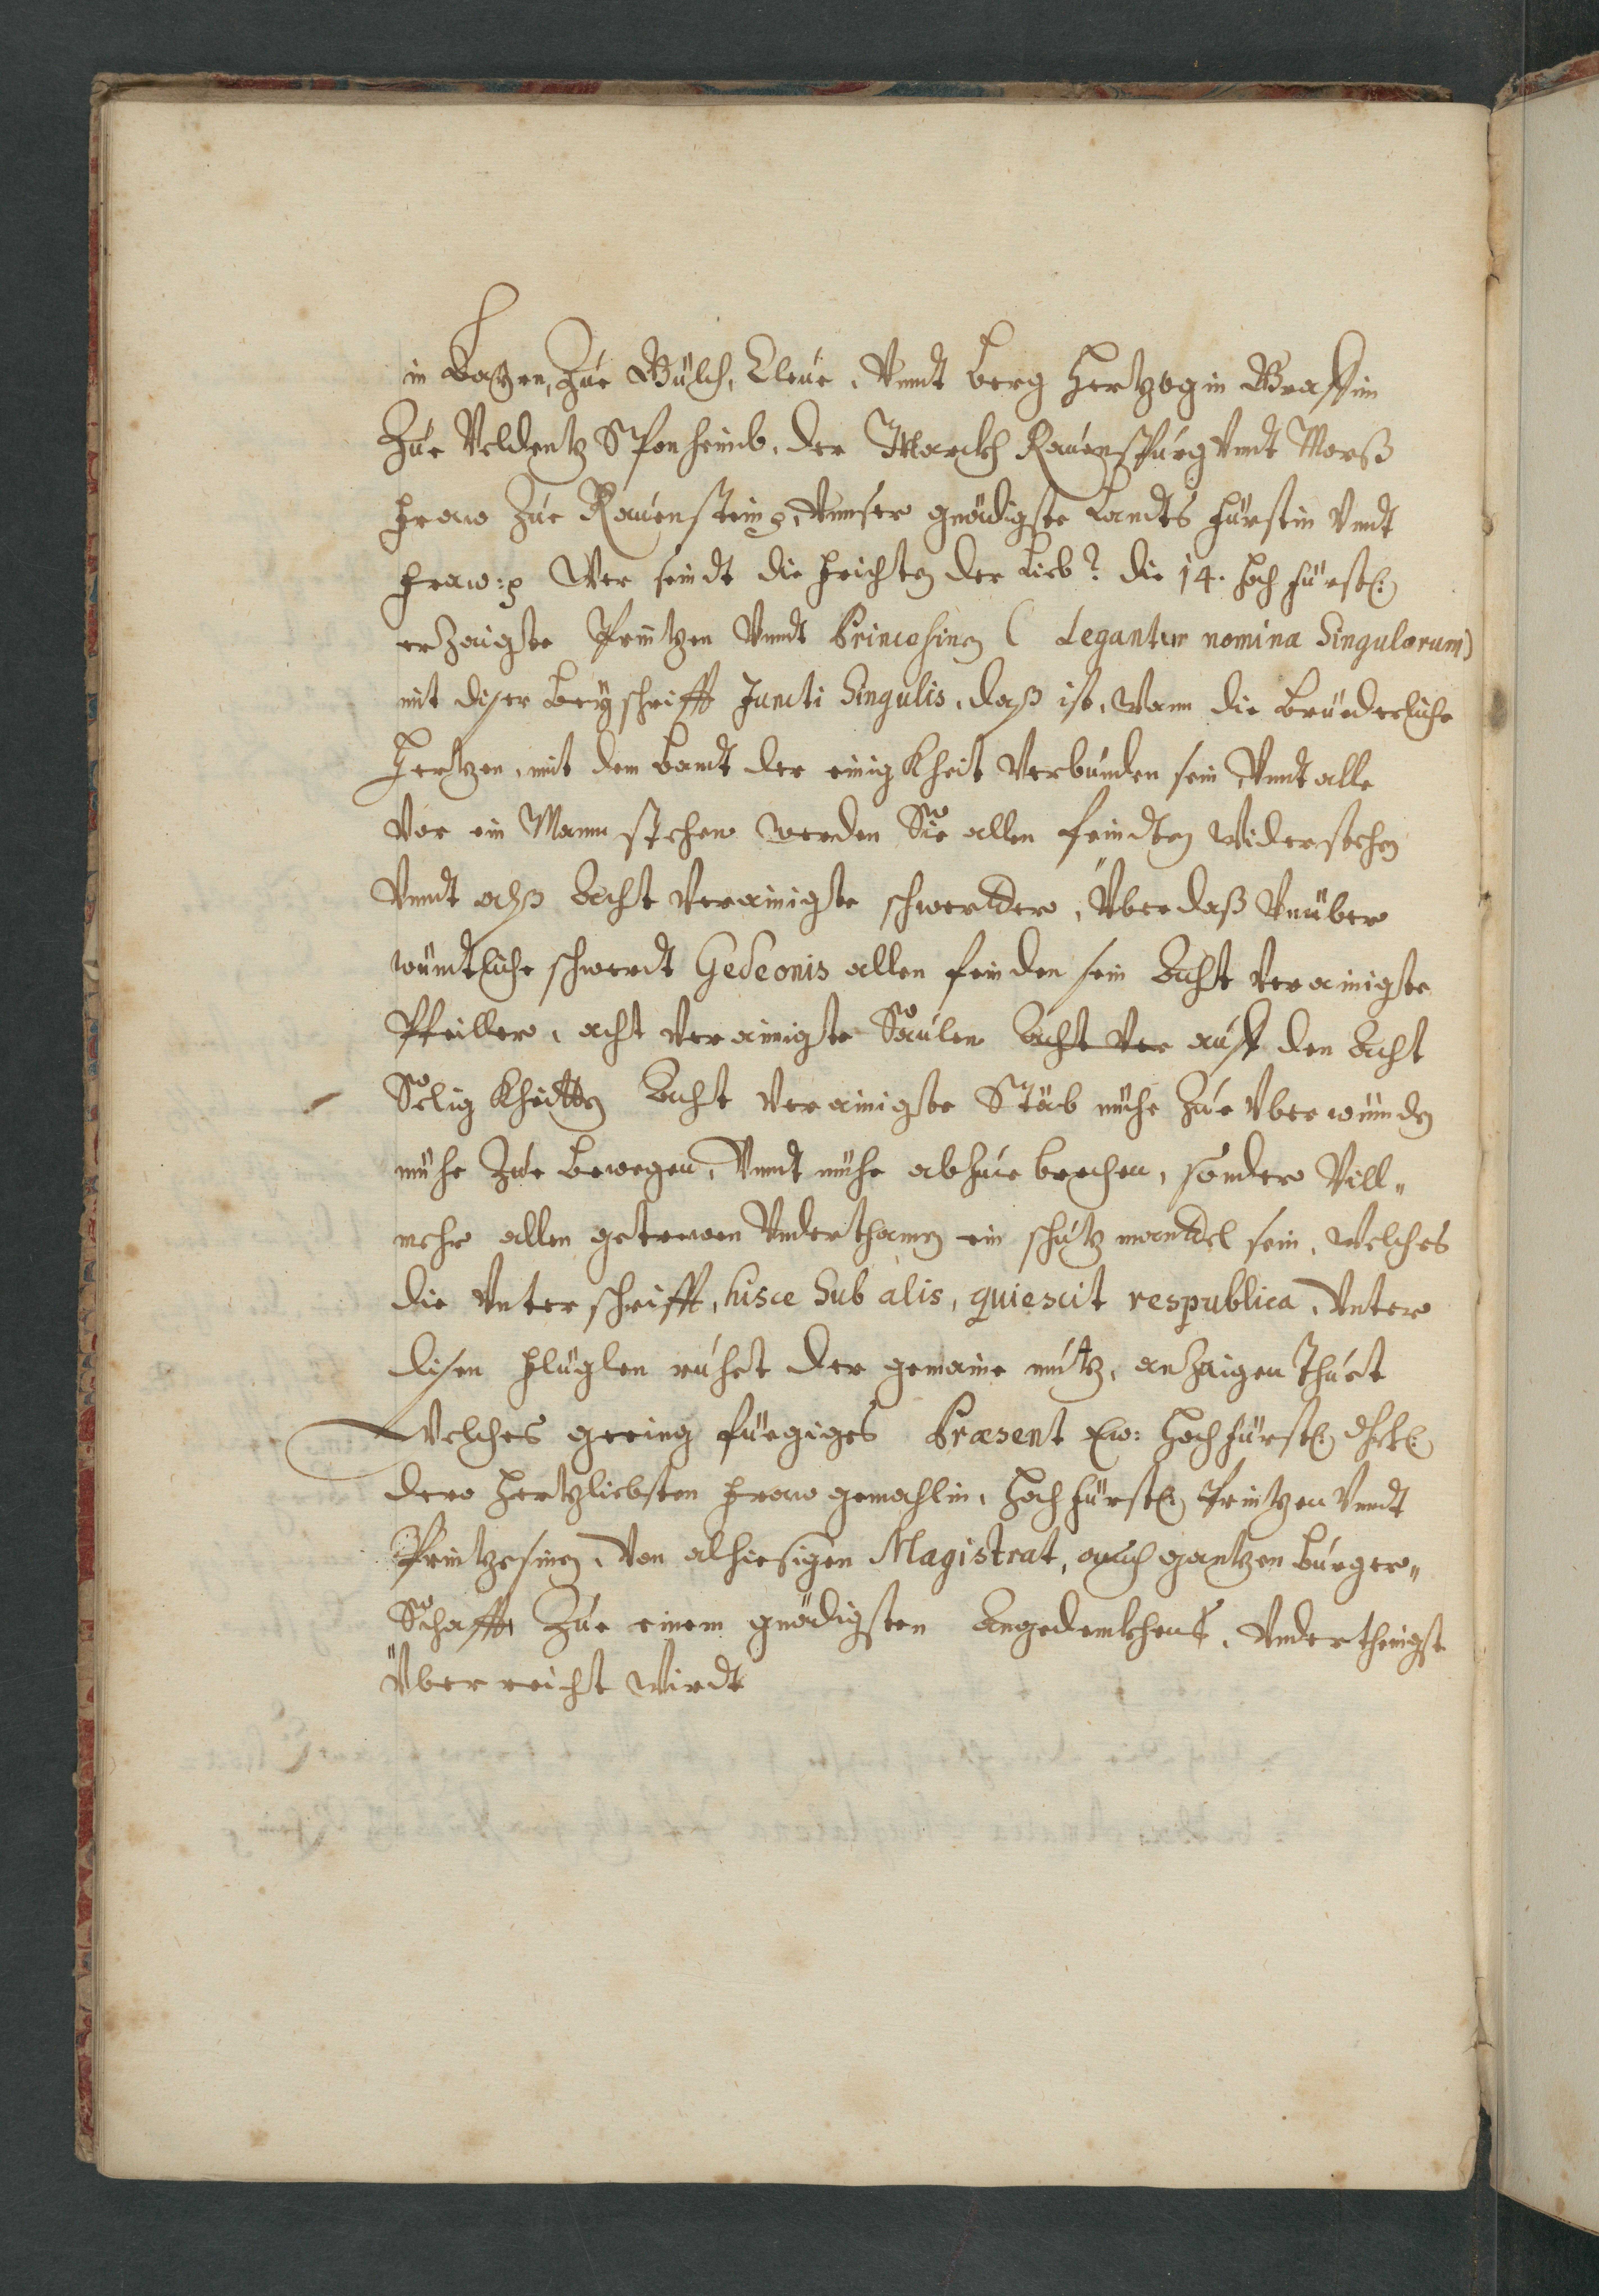 in Bayren, Zue Gülch, Cleue, Vnndt Berg Hertzogin Graffin
Zue Veldentz Sponheimb, der Marckh Rauenspurg Vnndt Morß
Fraw Zue Rauenstein ꝛc, Vnnser gnädigste Landts Fürstin Vndt
Fraw: ꝛc Wer seindt die Frichten der Lieb? die 14. Hochfürstl:
erzaigte Printzen Vnndt Princesinen ( Legantur nomina Singulorum)
mit diser Beyschrifft Juncti Singulis, daß ist, Wann die Brüederliche
Hertzen, mit dem Bandt der einigkheit Verbunden sein Vnndt alle
Vor ein Mann stehen werden Sie allen Feindten Widerstehen
Vnndt alß Acht Verainigte schwerdter, Über daß Vnüber
wündtliche schwerdt Gedeonis allen feinden sein Acht Verainigte
Pfeiller, acht Verainigte Säulen Acht Ver auff den Acht
Seligkheitten Acht Verainigte Stäb nicht Zue Vberwünden
nicht Zue Bewegen, Vnndt nicht abzue brechen, sonder Vill„
mehr allen getrewen Vnderthanen ein schutz manttel sein, Welches
die Vnterschrifft, hisce Sub alis, quiescit respublica, Vnter
disen Flüglen ruhet der gemaine nutz, anZaigen thuet
Welches gering fürgiges Præsent Ew: Hochfürstl: dhrtl:
dero Hertzliebsten Fraw gemahlin, Hochfürstl: Printzen Vnndt
Printzesinen, Von alhiesigen Magistrat, auch gantzen Burger„
Schafft Zue einem gnädigsten Angedenkhen, Vnderthenigst
Überreicht Wirdt